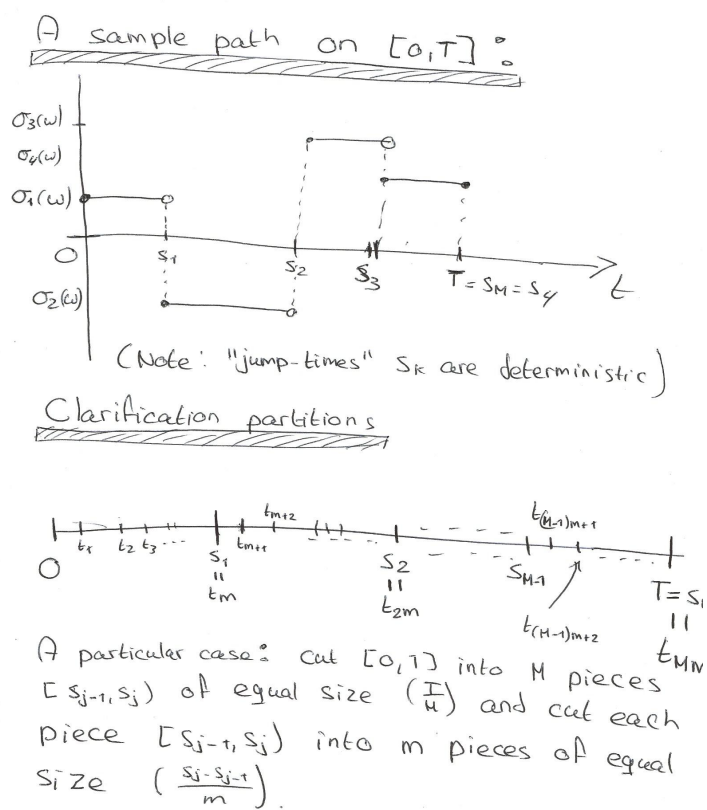 A sample path on [0,T]:
σ₃(ω)
σ₄(ω)
σ₁(ω)
O
S₁
S₂
S₃
T = S_M = S₄
t
σ₂(ω)
(Note: "jump-times" S_K are deterministic)
Clarification partitions
O
t₁
t₂
t₃
...
S₁
=
t_m
t_{m+1}
t_{m+2}
S₂
=
t_{2m}
S_{M-1}
t_{(M-1)m+1}
t_{(M-1)m+2}
T = S
=
t_{Mm}
A particular case: cut [0,T] into M pieces
[S_{j-1}, S_j) of equal size (T/M) and cut each
piece [S_{j-1}, S_j) into m pieces of equal
size ((S_j - S_{j-1})/m).